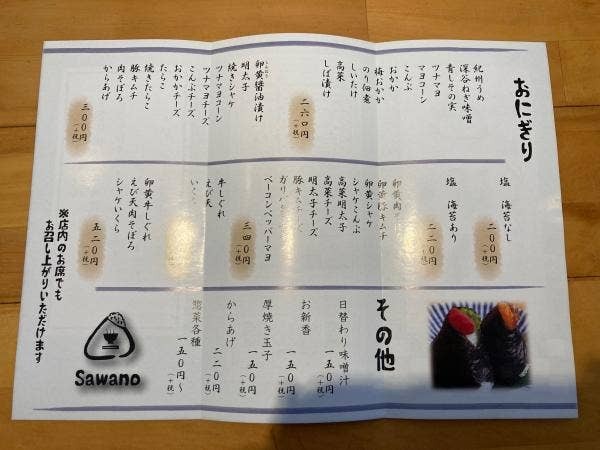 おにぎり
紀州うめ
深谷ねぎ味噌
青しその実
ツナマヨ
マヨコーン
こんぶ
おかか
梅おかか
のり佃煮
しいたけ
高菜
しば漬け
二六〇円
(+税)
卵黄醤油漬け
明太子
焼きシャケ
ツナマヨコーン
ツナマヨチーズ
こんぶチーズ
おかかチーズ
たらこ
焼きたらこ
豚キムチ
肉そぼろ
からあげ
三〇〇円
(+税)
塩 海苔なし
二〇〇円
(+税)
塩 海苔あり
二二〇円
(+税)
卵黄肉
卵黄豚キムチ
卵黄シャケ
シャケこんぶ
高菜明太子
高菜チーズ
明太子チーズ
豚キムチーズ
ベーコンペッパーマヨ
三四〇円
(+税)
牛しぐれ
えび天
卵黄牛しぐれ
えび天肉そぼろ
シャケいくら
五二〇円
(+税)
その他
日替わり味噌汁
一五〇円
(+税)
お新香
一五〇円
(+税)
厚焼き玉子
一五〇円
(+税)
からあげ
二二〇円
(+税)
惣菜各種
一五〇円～
(+税)
Sawano
※店内のお席でも
お召し上がりいただけます